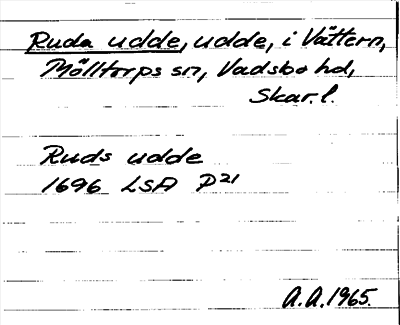 Ruda udde, udde, i Vättern,
Mölltorps sn, Vadsbo hd,
Skar. l.
Ruds udde
1696 LSA P21
A.A. 1965.